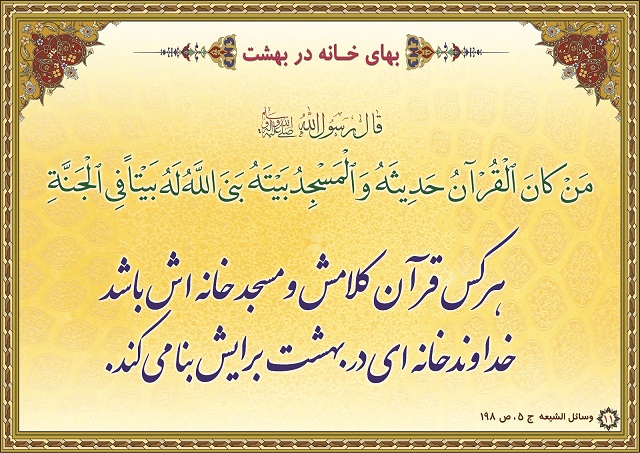 بهای خانه در بهشت
قال رسول الله صلی الله علیه وآله وسلم
مَنْ كانَ الْقُرْآنُ حَديثَهُ وَ الْمَسْجِدُ بَيْتَهُ بَنَى اللّهُ لَهُ بَيْتاً فِي الْجَنَّةِ
هرکس قرآن کلامش و مسجد خانه اش باشد
خداوند خانه ای در بهشت برایش بنا می کند.
۱۱ وسائل الشیعه ج ۵، ص ۱۹۸